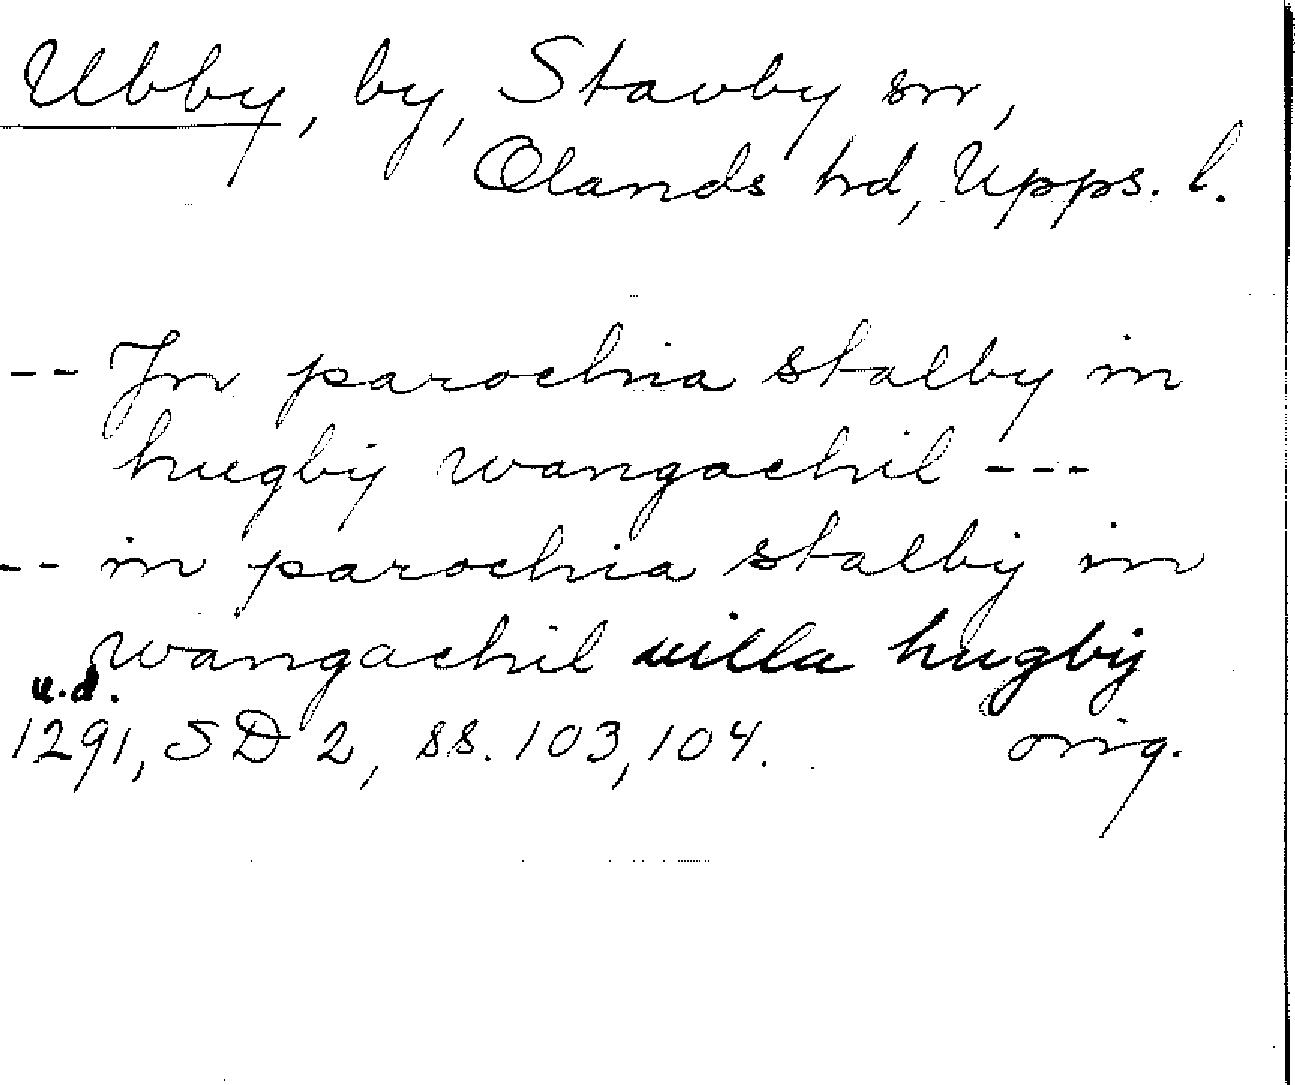 Ubby, by, Stavby sn,
Olands hd, Upps. l.
-- In parochia stalby in
hugby wangachil ---
-- in parochia stalbij in
wangachil villa hugbij
u.d.
1291, SD 2, ss. 103, 104. orig.